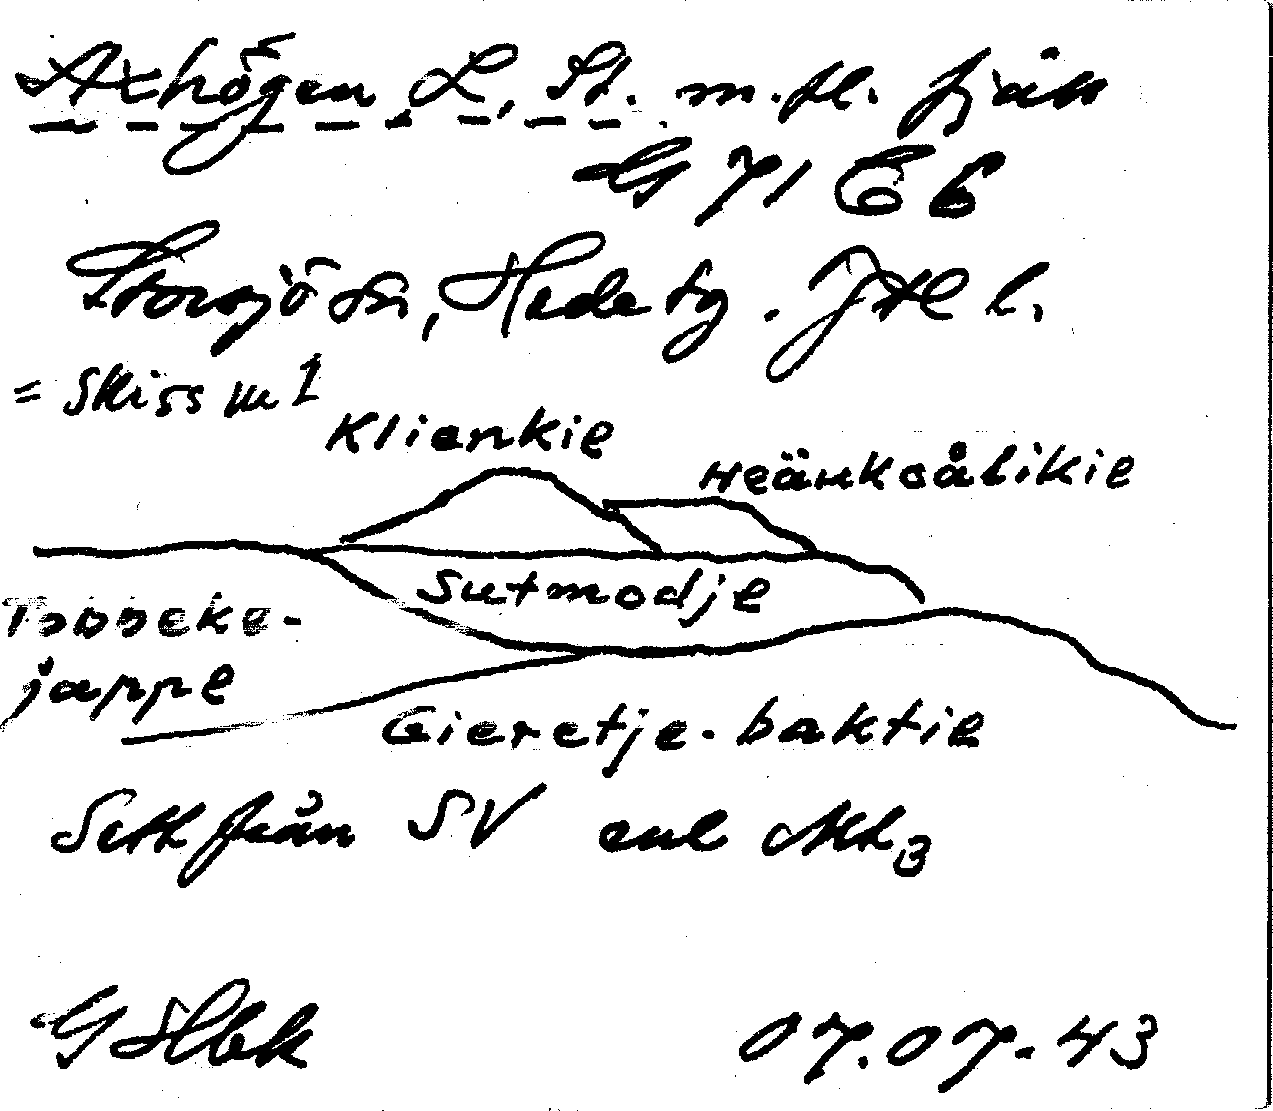 Axhögen, L, St. m.fl. fjäll
G 71 E 6
Storsjö sn, Hede tg. Jtl l.
= Skiss nr 1
Klienkie
Heänkoålikie
Sutmodje
jappe
Gieretje-baktie
Sett från SV enl
07.07.43